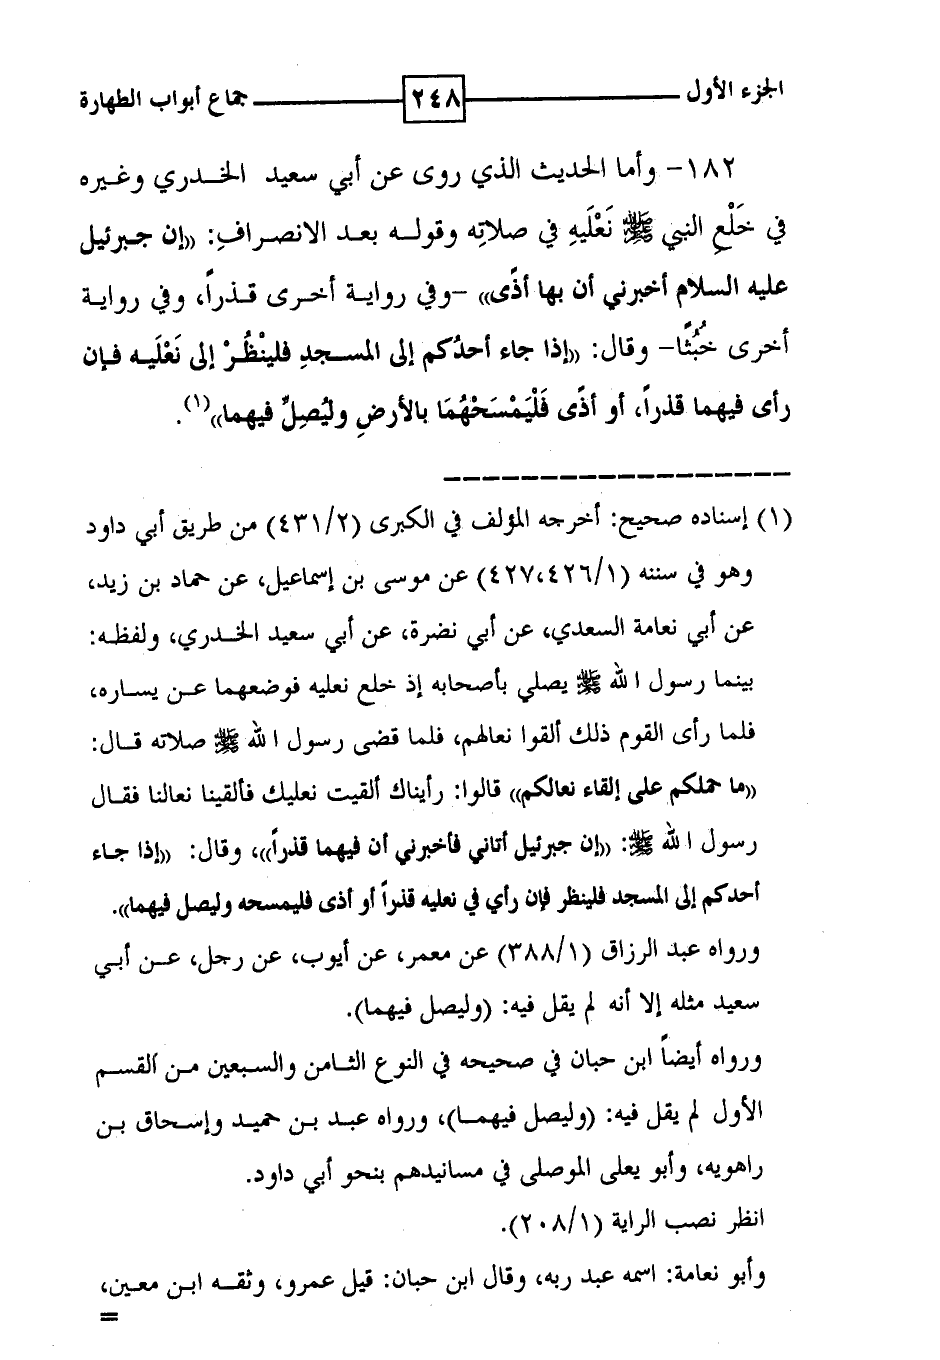 الجزء الأول ٢٤٨ جماع أبواب الطهارة
١٨٢- وأما الحديث الذي روى عن أبي سعيد الخدري وغيره
في خَلْعِ النبي ﷺ نَعْلَيهِ في صلاتِه وقوله بعد الانصرافِ: «إن جبرئيل
عليه السلام أخبرني أن بها أذًى» -وفي رواية أخرى قذراً، وفي رواية
أخرى خُبُثًا- وقال: «إذا جاء أحدُكم إلى المسجدِ فلينْظُرْ إلى نَعْلَيه فإن
رأى فيهما قذراً، أو أذًى فَلْيَمْسَحْهُمَا بالأرضِ وليُصِلِّ فيهما»(١).
(١) إسناده صحيح: أخرجه المؤلف في الكبرى (٤٣١/٢) من طريق أبي داود
وهو في سننه (٤٢٧،٤٢٦/١) عن موسى بن إسماعيل، عن حماد بن زيد،
عن أبي نعامة السعدي، عن أبي نضرة، عن أبي سعيد الخدري، ولفظه:
بينما رسول الله ﷺ يصلي بأصحابه إذ خلع نعليه فوضعهما عن يساره،
فلما رأى القوم ذلك ألقوا نعالهم، فلما قضى رسول الله ﷺ صلاته قال:
«ما حملكم على إلقاء نعالكم» قالوا: رأيناك ألقيت نعليك فألقينا نعالنا فقال
رسول الله ﷺ: «إن جبرئيل أتاني فأخبرني أن فيهما قذراً»، وقال: «إذا جاء
أحدكم إلى المسجد فلينظر فإن رأي في نعليه قذراً أو أذى فليمسحه وليصل فيهما».
ورواه عبد الرزاق (٣٨٨/١) عن معمر، عن أيوب، عن رجل، عن أبي
سعيد مثله إلا أنه لم يقل فيه: (وليصل فيهما).
ورواه أيضاً ابن حبان في صحيحه في النوع الثامن والسبعين من القسم
الأول لم يقل فيه: (وليصل فيهما)، ورواه عبد بن حميد وإسحاق بن
راهويه، وأبو يعلى الموصلى في مسانيدهم بنحو أبي داود.
انظر نصب الراية (٢٠٨/١).
وأبو نعامة: اسمه عبد ربه، وقال ابن حبان: قيل عمرو، وثقه ابن معين،
=